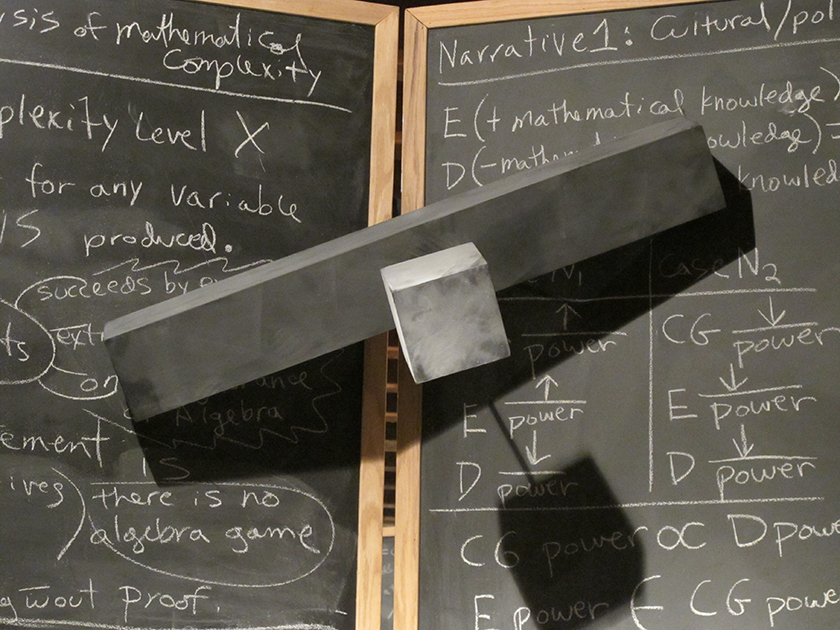 ysis of mathematical
complexity
plexity Level X
for any variable
IS produced.
succeeds by
ts
on
Algebra
ement
IS
ives
there is no
algebra game
g wout proof.
Narrative 1: Cultural/pol
E (+ mathematical knowledge)
D (- mathem owledge)
knowled
N1
Case N2
power
CG ↓ power
E ↑ power
E ↓ power
D ↓ power
D ↓ power
CG power ∝ D pow
E power ∈ CG powe